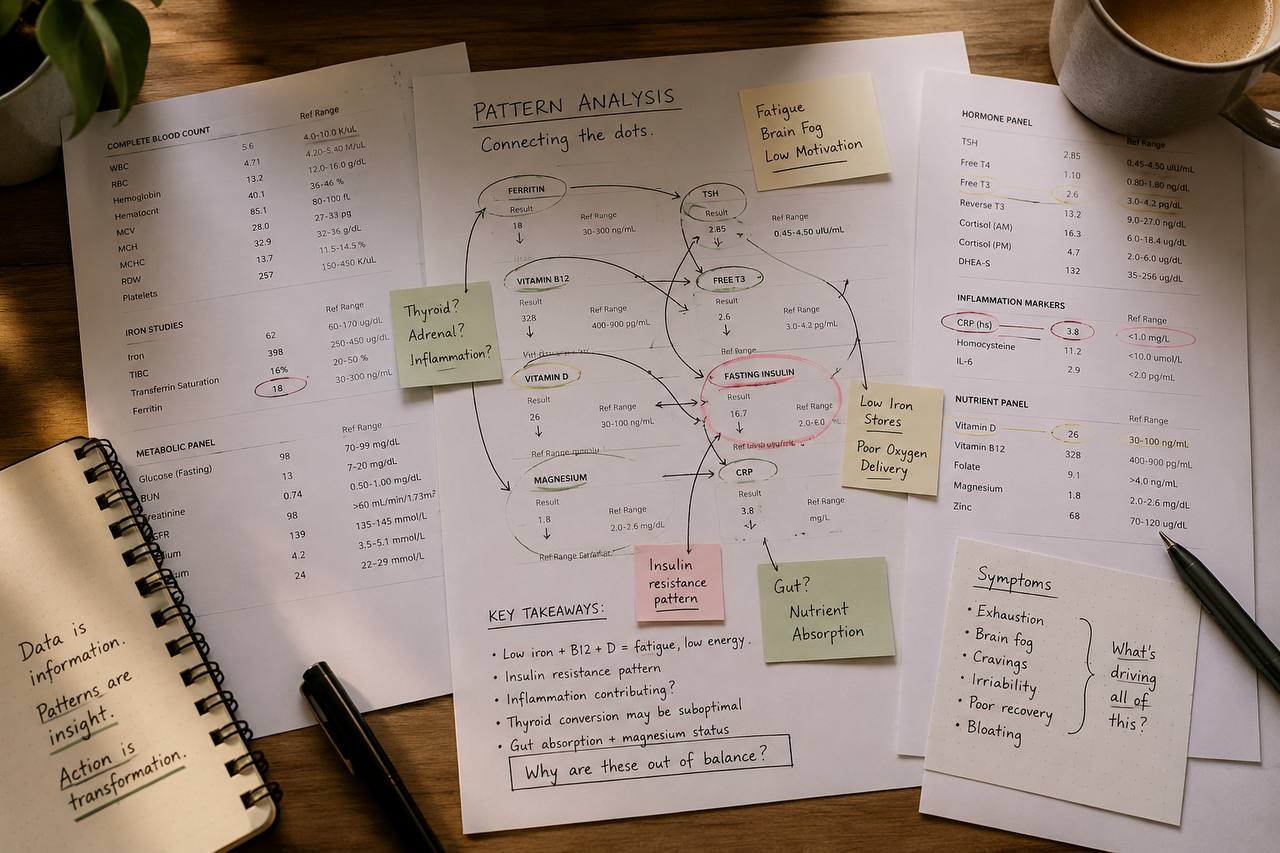 COMPLETE BLOOD COUNT Ref Range
WBC 5.6 4.0-10.0 K/uL
RBC 4.71 4.20-5.40 M/uL
Hemoglobin 13.2 12.0-16.0 g/dL
Hematocrit 40.1 36-46 %
MCV 85.1 80-100 fL
MCH 28.0 27-33 pg
MCHC 32.9 32-36 g/dL
RDW 13.7 11.5-14.5 %
Platelets 257 150-450 K/uL
IRON STUDIES Ref Range
Iron 62 60-170 ug/dL
TIBC 398 250-450 ug/dL
Transferrin Saturation 16% 20-50 %
Ferritin 18 30-300 ng/mL
METABOLIC PANEL Ref Range
Glucose (Fasting) 98 70-99 mg/dL
BUN 13 7-20 mg/dL
0.74 0.50-1.00 mg/dL
98 >60 mL/min/1.73m²
139 135-145 mmol/L
4.2 3.5-5.1 mmol/L
24 22-29 mmol/L
Data is
information.
Patterns are
insight.
Action is
transformation.
PATTERN ANALYSIS
Connecting the dots.
Fatigue
Brain Fog
Low Motivation
FERRITIN
Result
18
Ref Range
30-300 ng/mL
TSH
Result
2.85
Ref Range
0.45-4.50 uIU/mL
VITAMIN B12
Result
328
Ref Range
400-900 pg/mL
FREE T3
Result
2.6
Ref Range
3.0-4.2 pg/mL
Ref Range
Thyroid?
Adrenal?
Inflammation?
VITAMIN D
Result
26
Ref Range
30-100 ng/mL
Ref Range
FASTING INSULIN
Result
16.7
Ref Range
2.0-6.0
Low Iron
Stores
Poor Oxygen
Delivery
MAGNESIUM
Result
1.8
Ref Range
2.0-2.6 mg/dL
Ref Range
CRP
Result
3.8
Ref Range
mg/L
Insulin
resistance
pattern
Gut?
Nutrient
Absorption
KEY TAKEAWAYS:
• Low iron + B12 + D = fatigue, low energy.
• Insulin resistance pattern
• Inflammation contributing?
• Thyroid conversion may be suboptimal
• Gut absorption + magnesium status
Why are these out of balance?
HORMONE PANEL
Ref Range
TSH 2.85 0.45-4.50 uIU/mL
Free T4 1.10 0.80-1.80 ng/dL
Free T3 2.6 3.0-4.2 pg/dL
Reverse T3 13.2 9.0-27.0 ng/dL
Cortisol (AM) 16.3 6.0-18.4 ug/dL
Cortisol (PM) 4.7 2.0-6.0 ug/dL
DHEA-S 132 35-256 ug/dL
INFLAMMATION MARKERS
Ref Range
CRP (hs) 3.8 <1.0 mg/L
Homocysteine 11.2 <10.0 umol/L
IL-6 2.9 <2.0 pg/mL
NUTRIENT PANEL
Ref Range
Vitamin D 26 30-100 ng/mL
Vitamin B12 328 400-900 pg/mL
Folate 9.1 >4.0 ng/mL
Magnesium 1.8 2.0-2.6 mg/dL
Zinc 68 70-120 ug/dL
Symptoms
• Exhaustion
• Brain fog
• Cravings
• Irriability
• Poor recovery
• Bloating
What's
driving
all of
this?